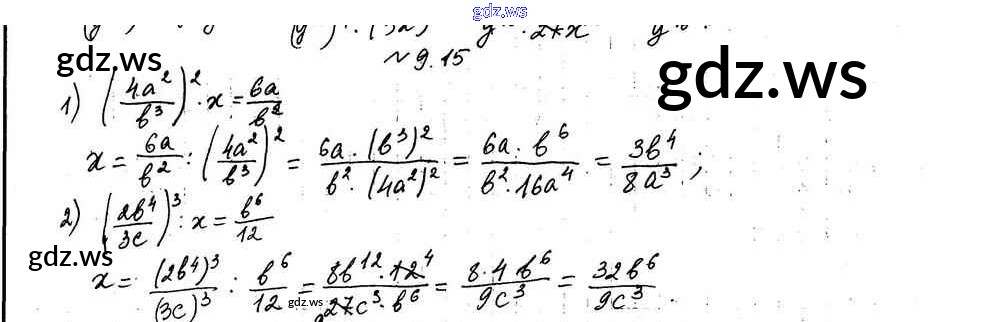 gdz.ws
№ 9.15
gdz.ws
gdz.ws
1) (4a²/b³)² · x = 6a/b²
x = 6a/b² : (4a²/b³)² = 6a · (b³)²/b² · (4a²)² = 6a · b⁶/b² · 16a⁴ = 3b⁴/8a³ ;
2) (2b⁴/3c)³ : x = b⁶/12
gdz.ws
x = (2b⁴)³/(3c)³ : b⁶/12 = 8b¹² · 12⁴/27c³ · b⁶ = 8 · 4b⁶/9c³ = 32b⁶/9c³ .
gdz.ws